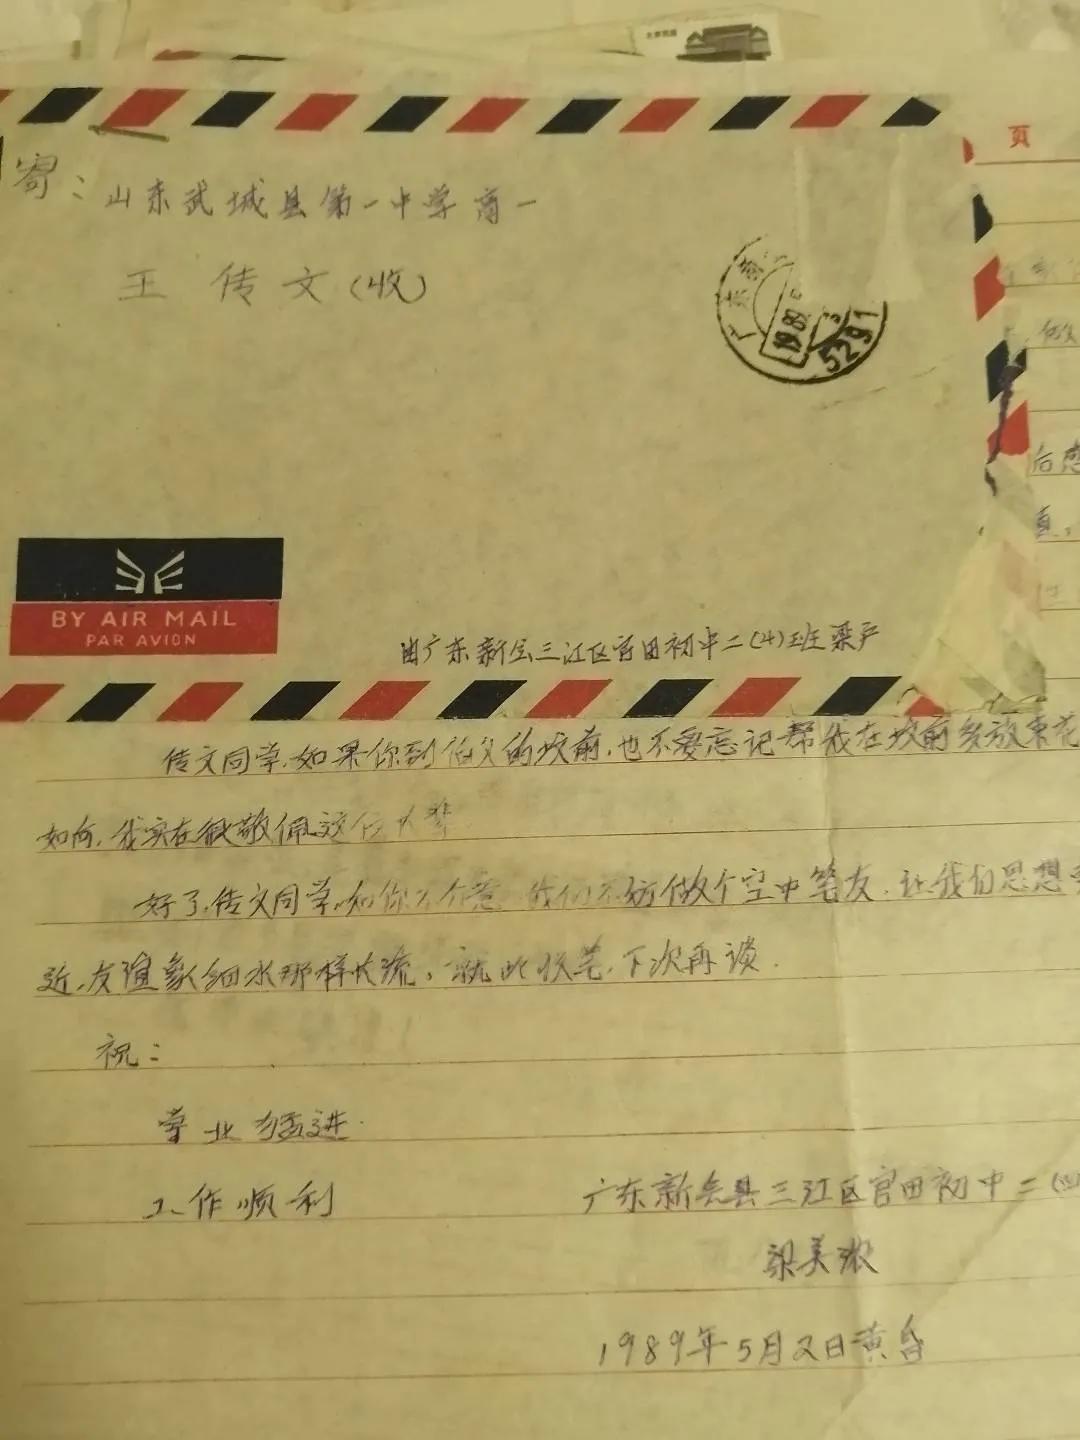 页
寄：山东武城县第一中学高一
王传文(收)
广东新
1989
5291
BY AIR MAIL
PAR AVION
由广东新会三江区官田初中二(4)班梁
传文同学，如果你到伯父的坟前，也不要忘记帮我在坟前多放束花
如何，我实在很敬佩这位大
好了，传文同学，如你不介意，我们不妨做个空中笔友，让我们思想
近，友谊象细水那样长流。就此收笔，下次再谈.
祝：
学业猛进.
工作顺利
广东新会县三江区官田初中二(四
梁美浓
1989年5月2日黄昏
做
后感
真，